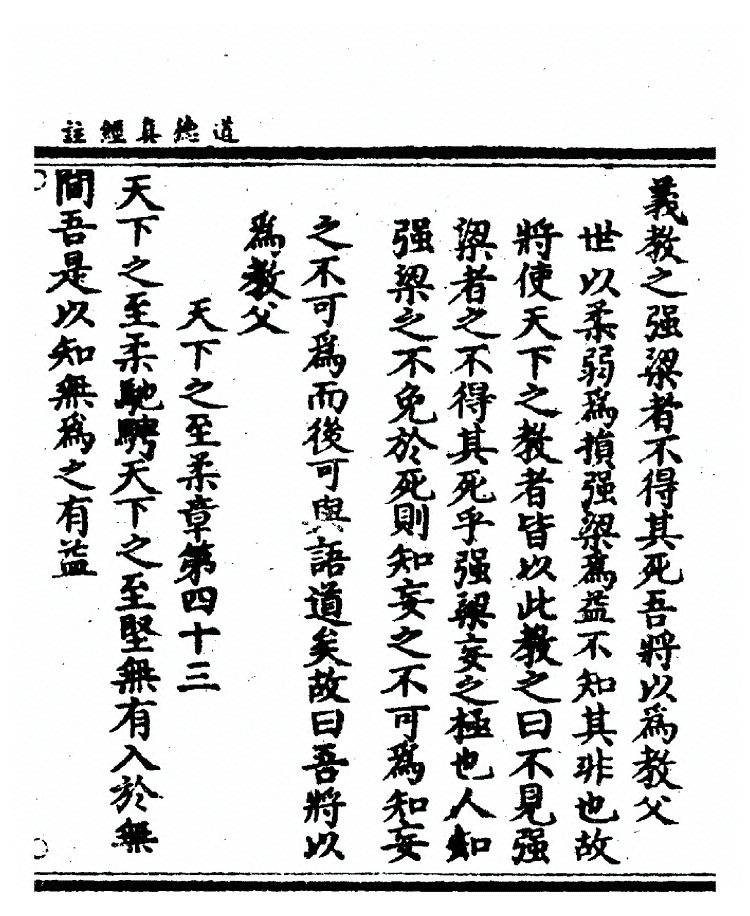 道德真經註
義教之强梁者不得其死吾將以為教父
世以柔弱為損强梁為益不知其非也故
將使天下之教者皆以此教之曰不見强
梁者之不得其死乎强梁妄之極也人知
强梁之不免於死則知妄之不可為知妄
之不可為而後可與語道矣故曰吾將以
為教父
天下之至柔章第四十三
天下之至柔馳騁天下之至堅無有入於無
間吾是以知無為之有益